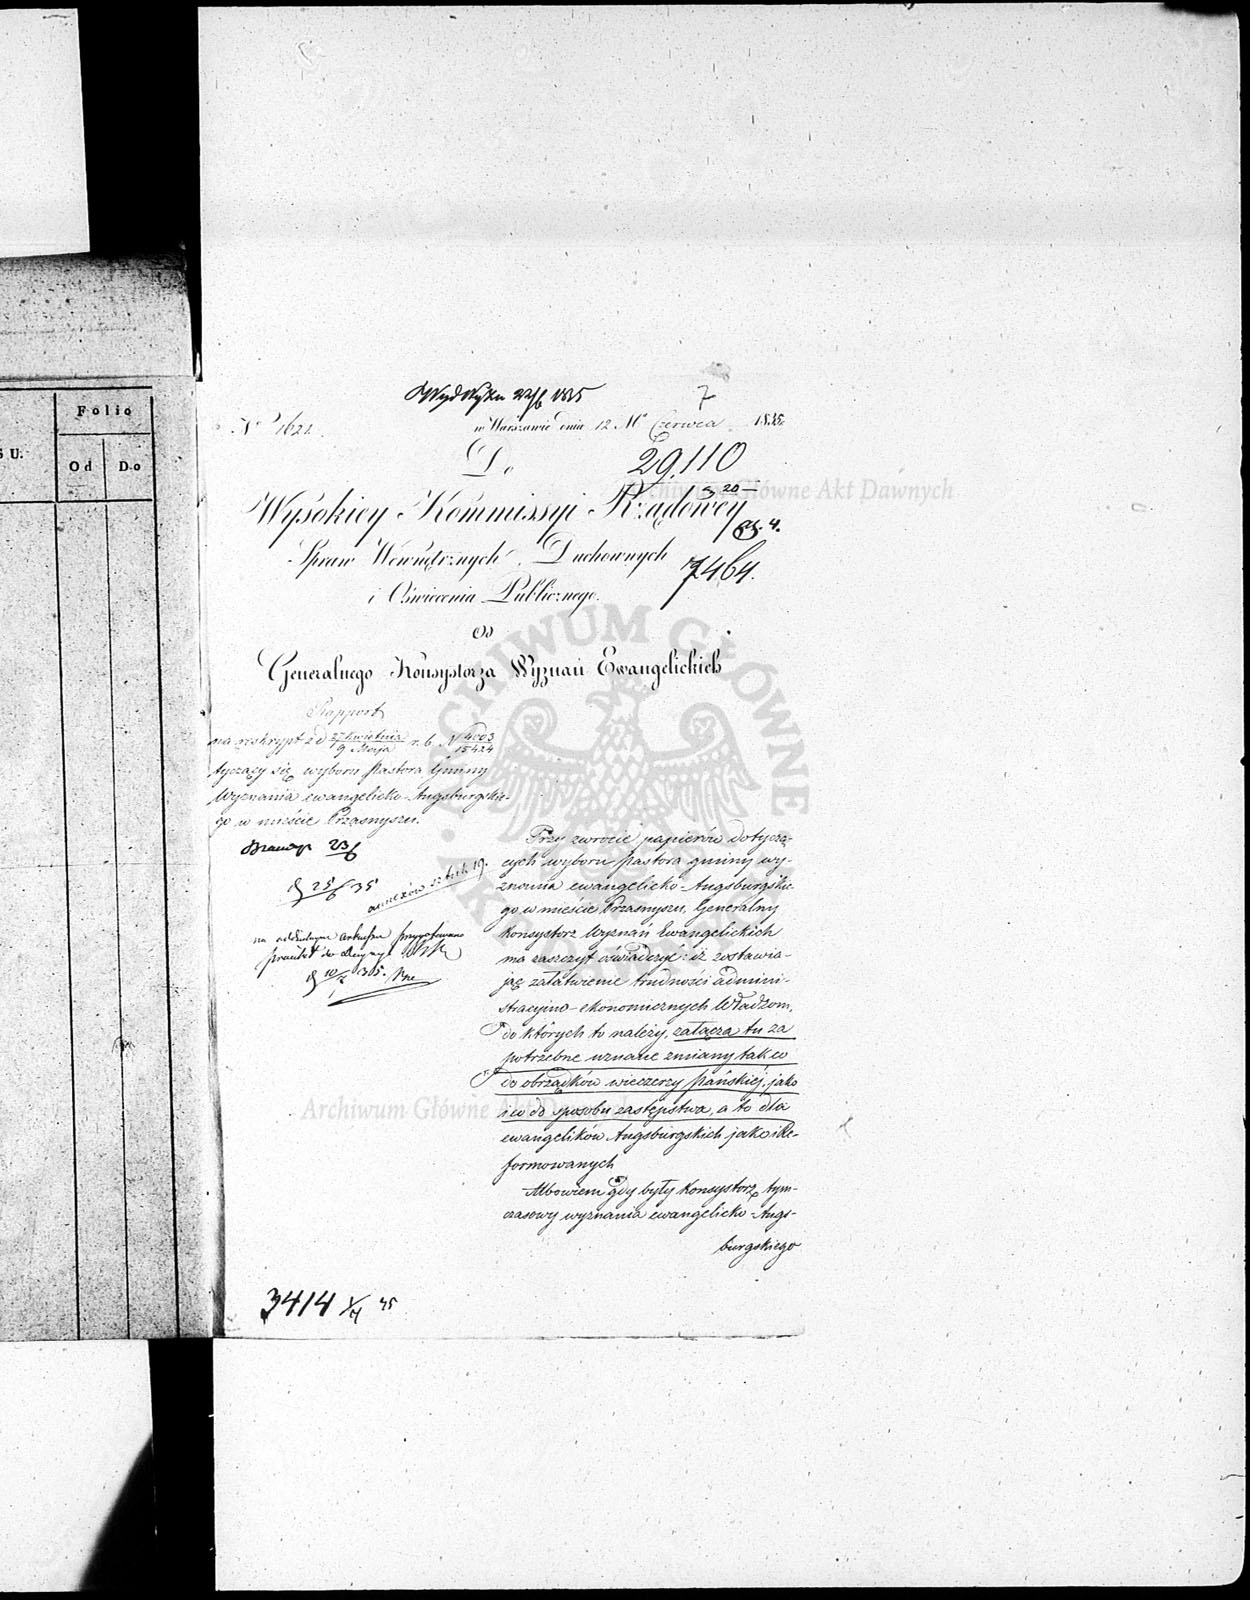 Folio
S U.
Od
Do
7
No 1621.
w Warszawie dnia 12 Mca Czerwca 1835.
Do
29,110
Wysokiey Kommissyi Rządowey
Spraw Wewnętrznych, Duchownych
7464.
i Oświecenia Publicznego.
Od
Generalnego Konsystorza Wyznań Ewangelickich
Rapport
na reskrypt z d 27 Kwietnia / 9 Maja r. b. N 4003 / 15424
tyczący się wyboru Pastora Gminy
Wyznania ewangelicko-Augsburgskie-
go w mieście Przasnyszu.
23/6
25/6 35
annexów sztuk 19.
na oddzielnym arkuszu przygotowano
Przy zwrocie papierów dotyczą-
cych wyboru Pastora gminy wy-
znania ewangelicko-Augsburgskie-
go w mieście Przasnyszu, Generalny
Konsystorz Wyznań Ewangelickich
ma zaszczyt oświadczyć: iż zostawia-
jąc załatwienie trudności admini-
stracyjno-ekonomicznych Władzom,
do których to należy, załącza tu za
potrzebne uznane zmiany tak co
do obrządków wieczerzy Pańskiéj, jako
i co do sposobu zastępstwa, a to dla
ewangelików Augsburgskich jako i Re-
formowanych
Albowiem gdy były Konsystorz tym-
czasowy wyznania ewangelicko-Augs-
burgskiego
3414
Archiwum Główne Akt Dawnych
Archiwum Główne Akt Dawnych
ARCHIWUM GŁÓWNE